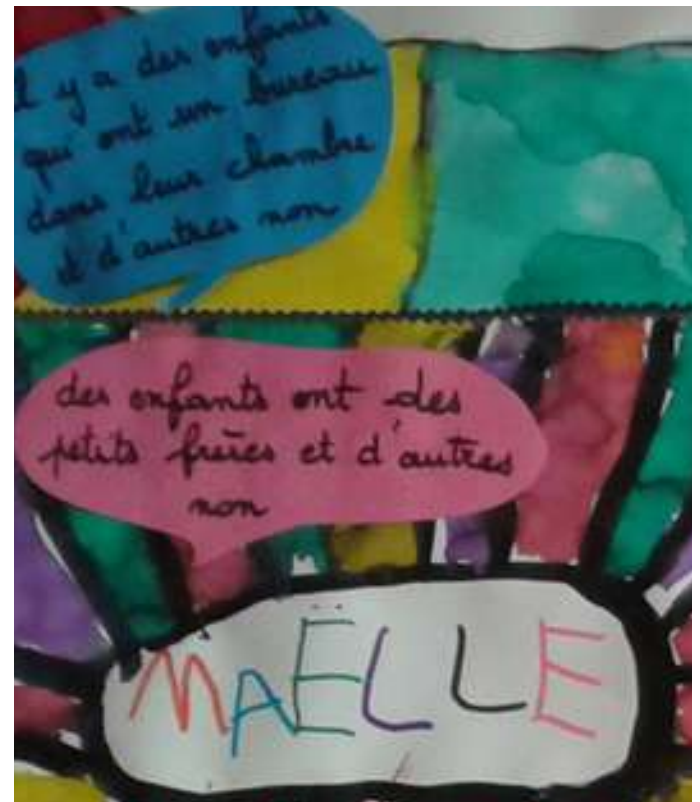 il y a des enfants
qui ont un bureau
dans leur chambre
et d'autres non
des enfants ont des
petits frères et d'autres
non
MAËLLE